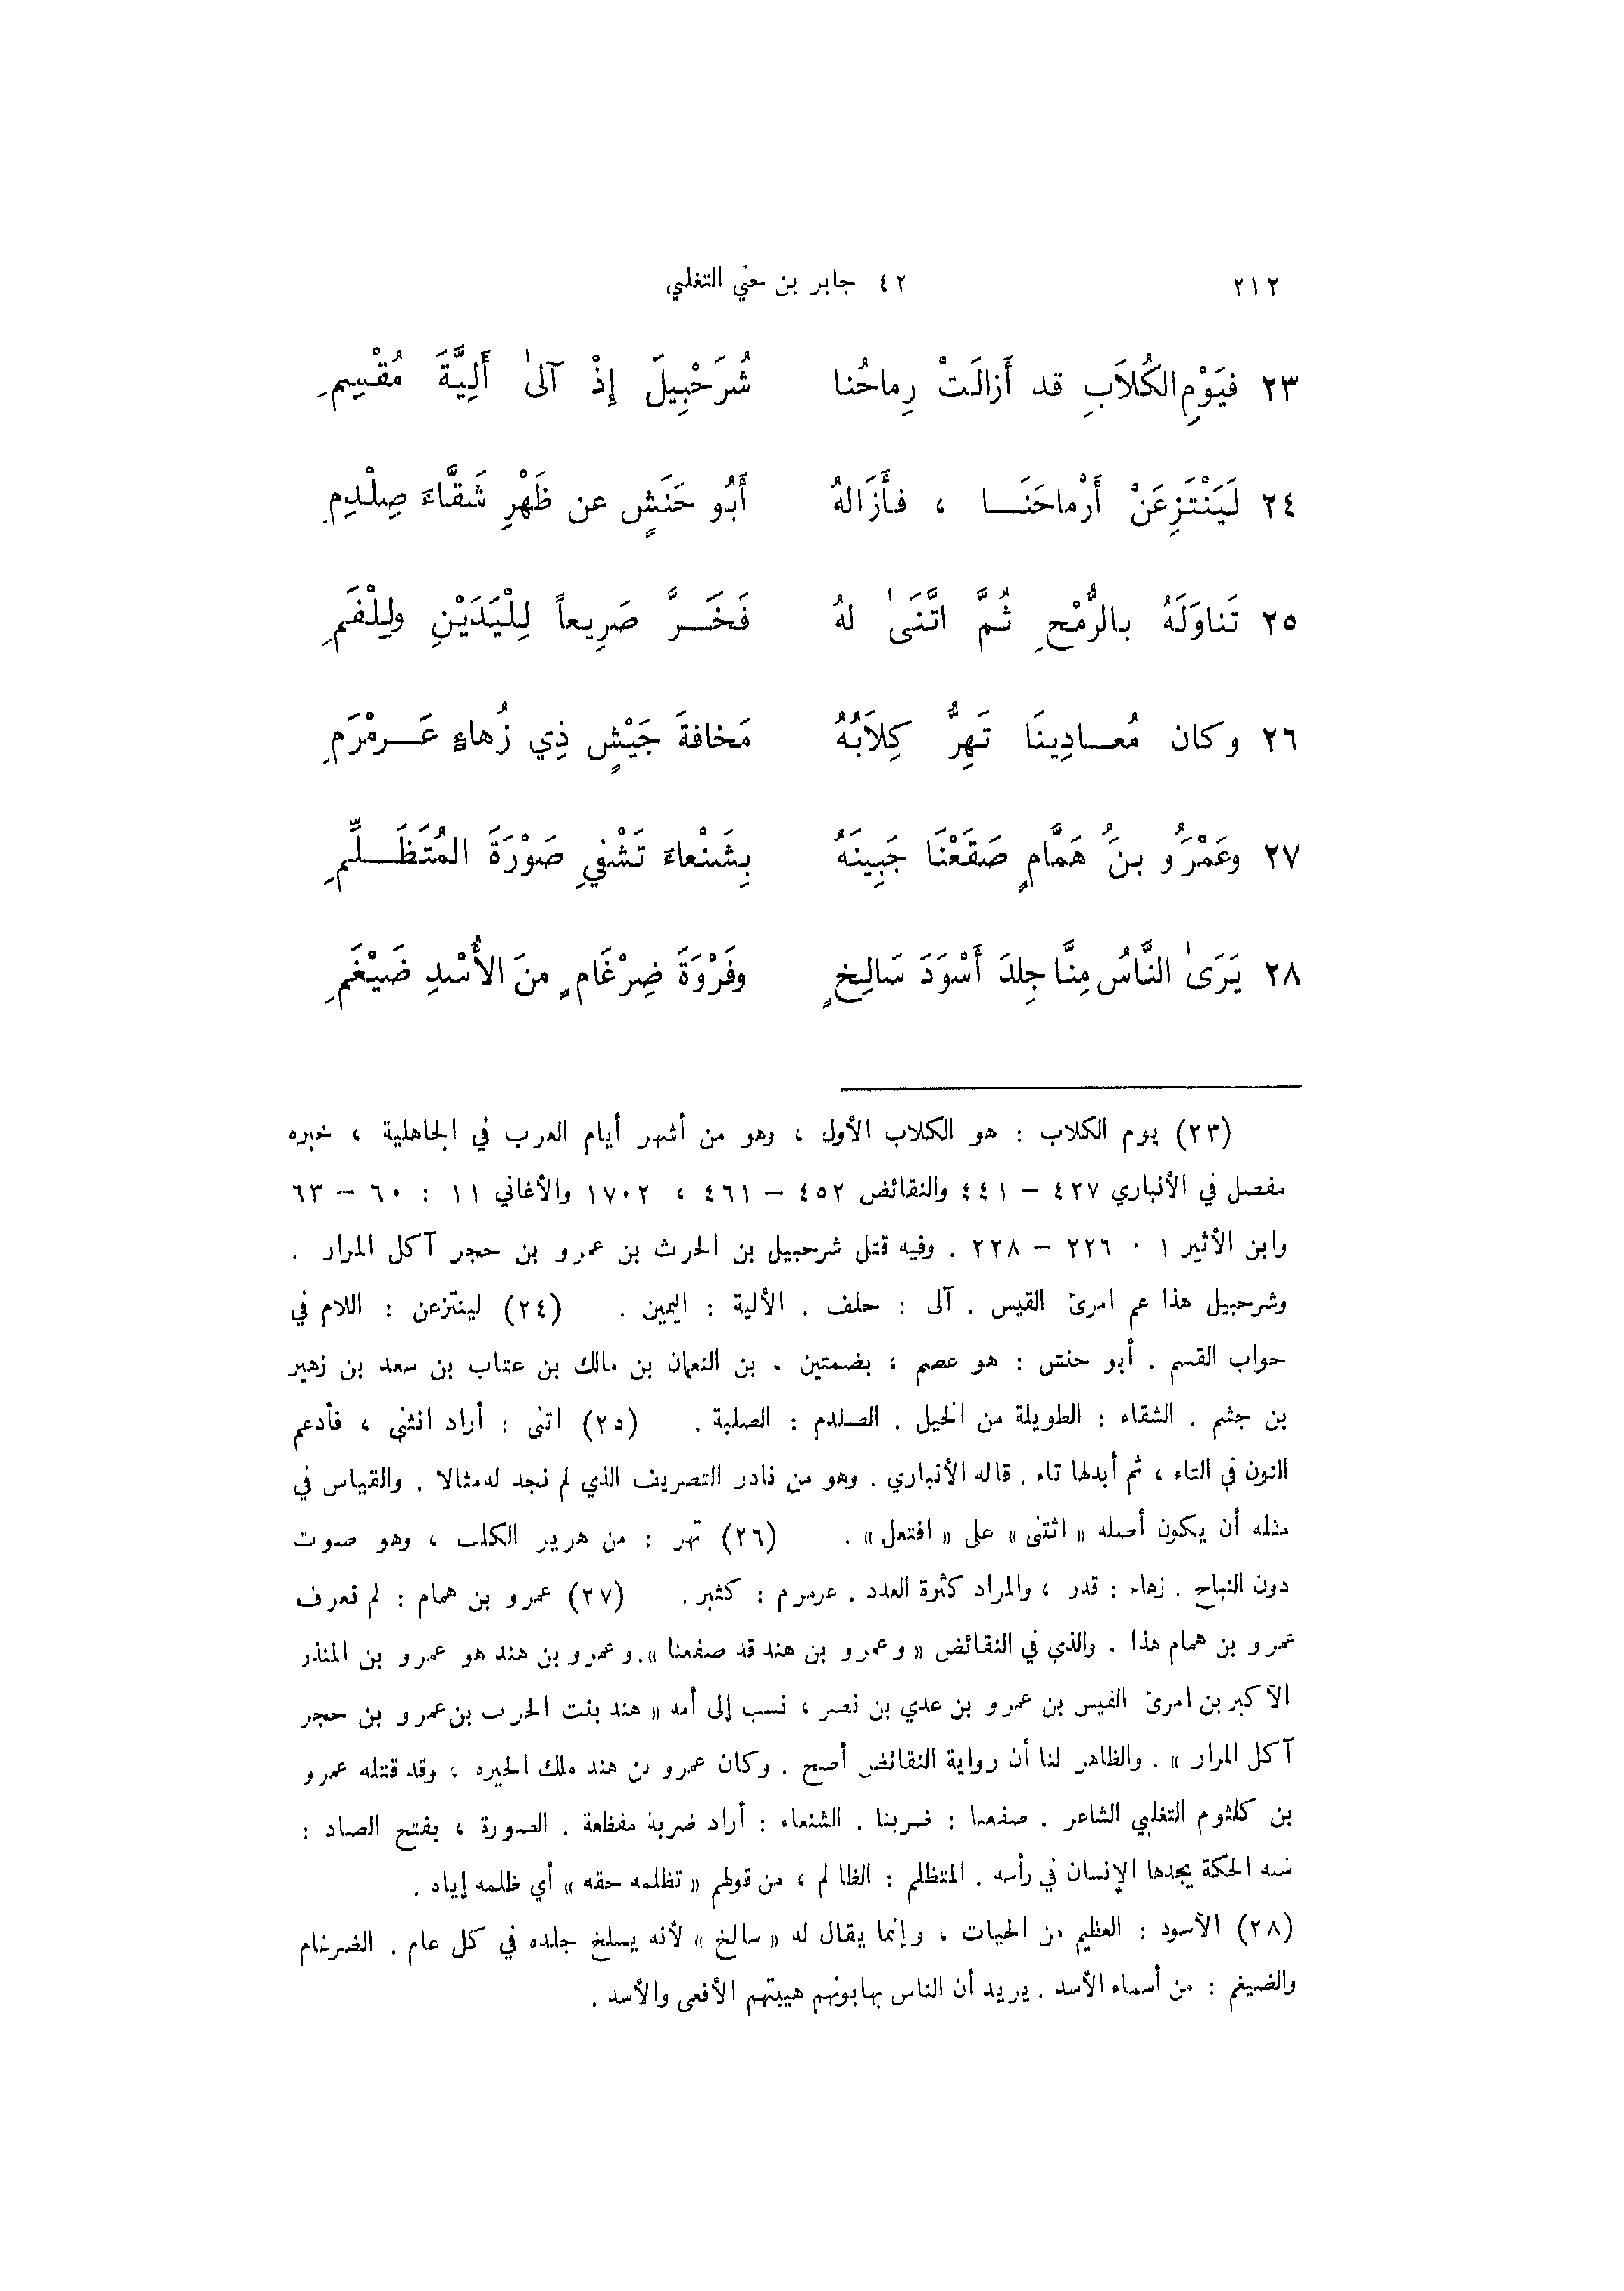 ٢١٢ ٤٢ جابر بن حني التغلبي
٢٣ فيَوْمِ الكُلاَبِ قد أَزالَتْ رِماحُنا شُرَحْبِيلَ إِذْ آلىٰ أَلِيَّةَ مُقْسِمِ
٢٤ لَيَنْتَزِعَنْ أَرْماحَنَا ، فأَزَالهُ أَبُو حَنَشٍ عن ظَهْرِ شَقَّاءَ صِلْدِمِ
٢٥ تَناوَلَهُ بالرُّمْحِ ثُمَّ اتَّنَىٰ لهُ فَخَرَّ صَرِيعاً لِلْيَدَيْنِ ولِلْفَمِ
٢٦ وكان مُعادِينَا تَهِرُّ كِلاَبُهُ مَخافةَ جَيْشٍ ذِي زُهاءٍ عَرمْرَمِ
٢٧ وعَمْرَُو بنَُ هَمَّامٍ صَقَعْنَا جَبِينَهُ بِشَنْعاءَ تَشْفِي صَوْرَةَ المُتَظَلِّمِ
٢٨ يَرَىٰ النَّاسُ مِنَّا جِلدَ أَسْوَدَ سَالِخٍ وفَرْوَةَ ضِرْغَامٍ منَ الأُسْدِ ضَيْغَمِ
(٢٣) يوم الكلاب : هو الكلاب الأول ، وهو من أشهر أيام العرب في الجاهلية ، خبره
مفصل في الأنباري ٤٢٧ – ٤٤١ والنقائض ٤٥٢ – ٤٦١ ، ١٧٠٢ والأغاني ١١ : ٦٠ – ٦٣
وابن الأثير ١ ٠ ٢٢٦ – ٢٢٨ . وفيه قتل شرحبيل بن الحرث بن عمرو بن حجر آكل المرار .
وشرحبيل هذا عم امرئ القيس . آلى : حلف . الألية : اليمين . (٢٤) لينتزعن : اللام في
جواب القسم . أبو حنش : هو عصم ، بضمتين ، بن النعمان بن مالك بن عتاب بن سعد بن زهير
بن جشم . الشقاء : الطويلة من الخيل . الصلدم : الصلبة . (٢٥) اتنى : أراد انثنى ، فأدغم
النون في التاء ، ثم أبدلها تاء . قاله الأنباري . وهو من نادر التصريف الذي لم نجد له مثالا . والقياس في
مثله أن يكون أصله « اثتنى » على « افتعل » . (٢٦) تهر : من هرير الكلب ، وهو صوت
دون النباح . زهاء : قدر ، والمراد كثرة العدد . عرمرم : كثير . (٢٧) عمرو بن همام : لم نعرف
عمرو بن همام هذا ، والذي في النقائض « وعمرو بن هند قد صقعنا » . وعمرو بن هند هو عمرو بن المنذر
الأكبر بن امرئ القيس بن عمرو بن عدي بن نصر ، نسب إلى أمه « هند بنت الحرث بن عمرو بن حجر
آكل المرار » . والظاهر لنا أن رواية النقائض أصح . وكان عمرو بن هند ملك الحيرة ، وقد قتله عمرو
بن كلثوم التغلبي الشاعر . صقعنا : ضربنا . الشنعاء : أراد ضربة مفظعة . الصورة ، بفتح الصاد :
شبه الحكة يجدها الإنسان في رأسه . المتظلم : الظالم ، من قولهم « تظلمه حقه » أي ظلمه إياه .
(٢٨) الأسود : العظيم من الحيات ، وإنما يقال له « سالخ » لأنه يسلخ جلده في كل عام . الضرغام
والضيغم : من أسماء الأسد . يريد أن الناس يهابونهم هيبتهم الأفعى والأسد .